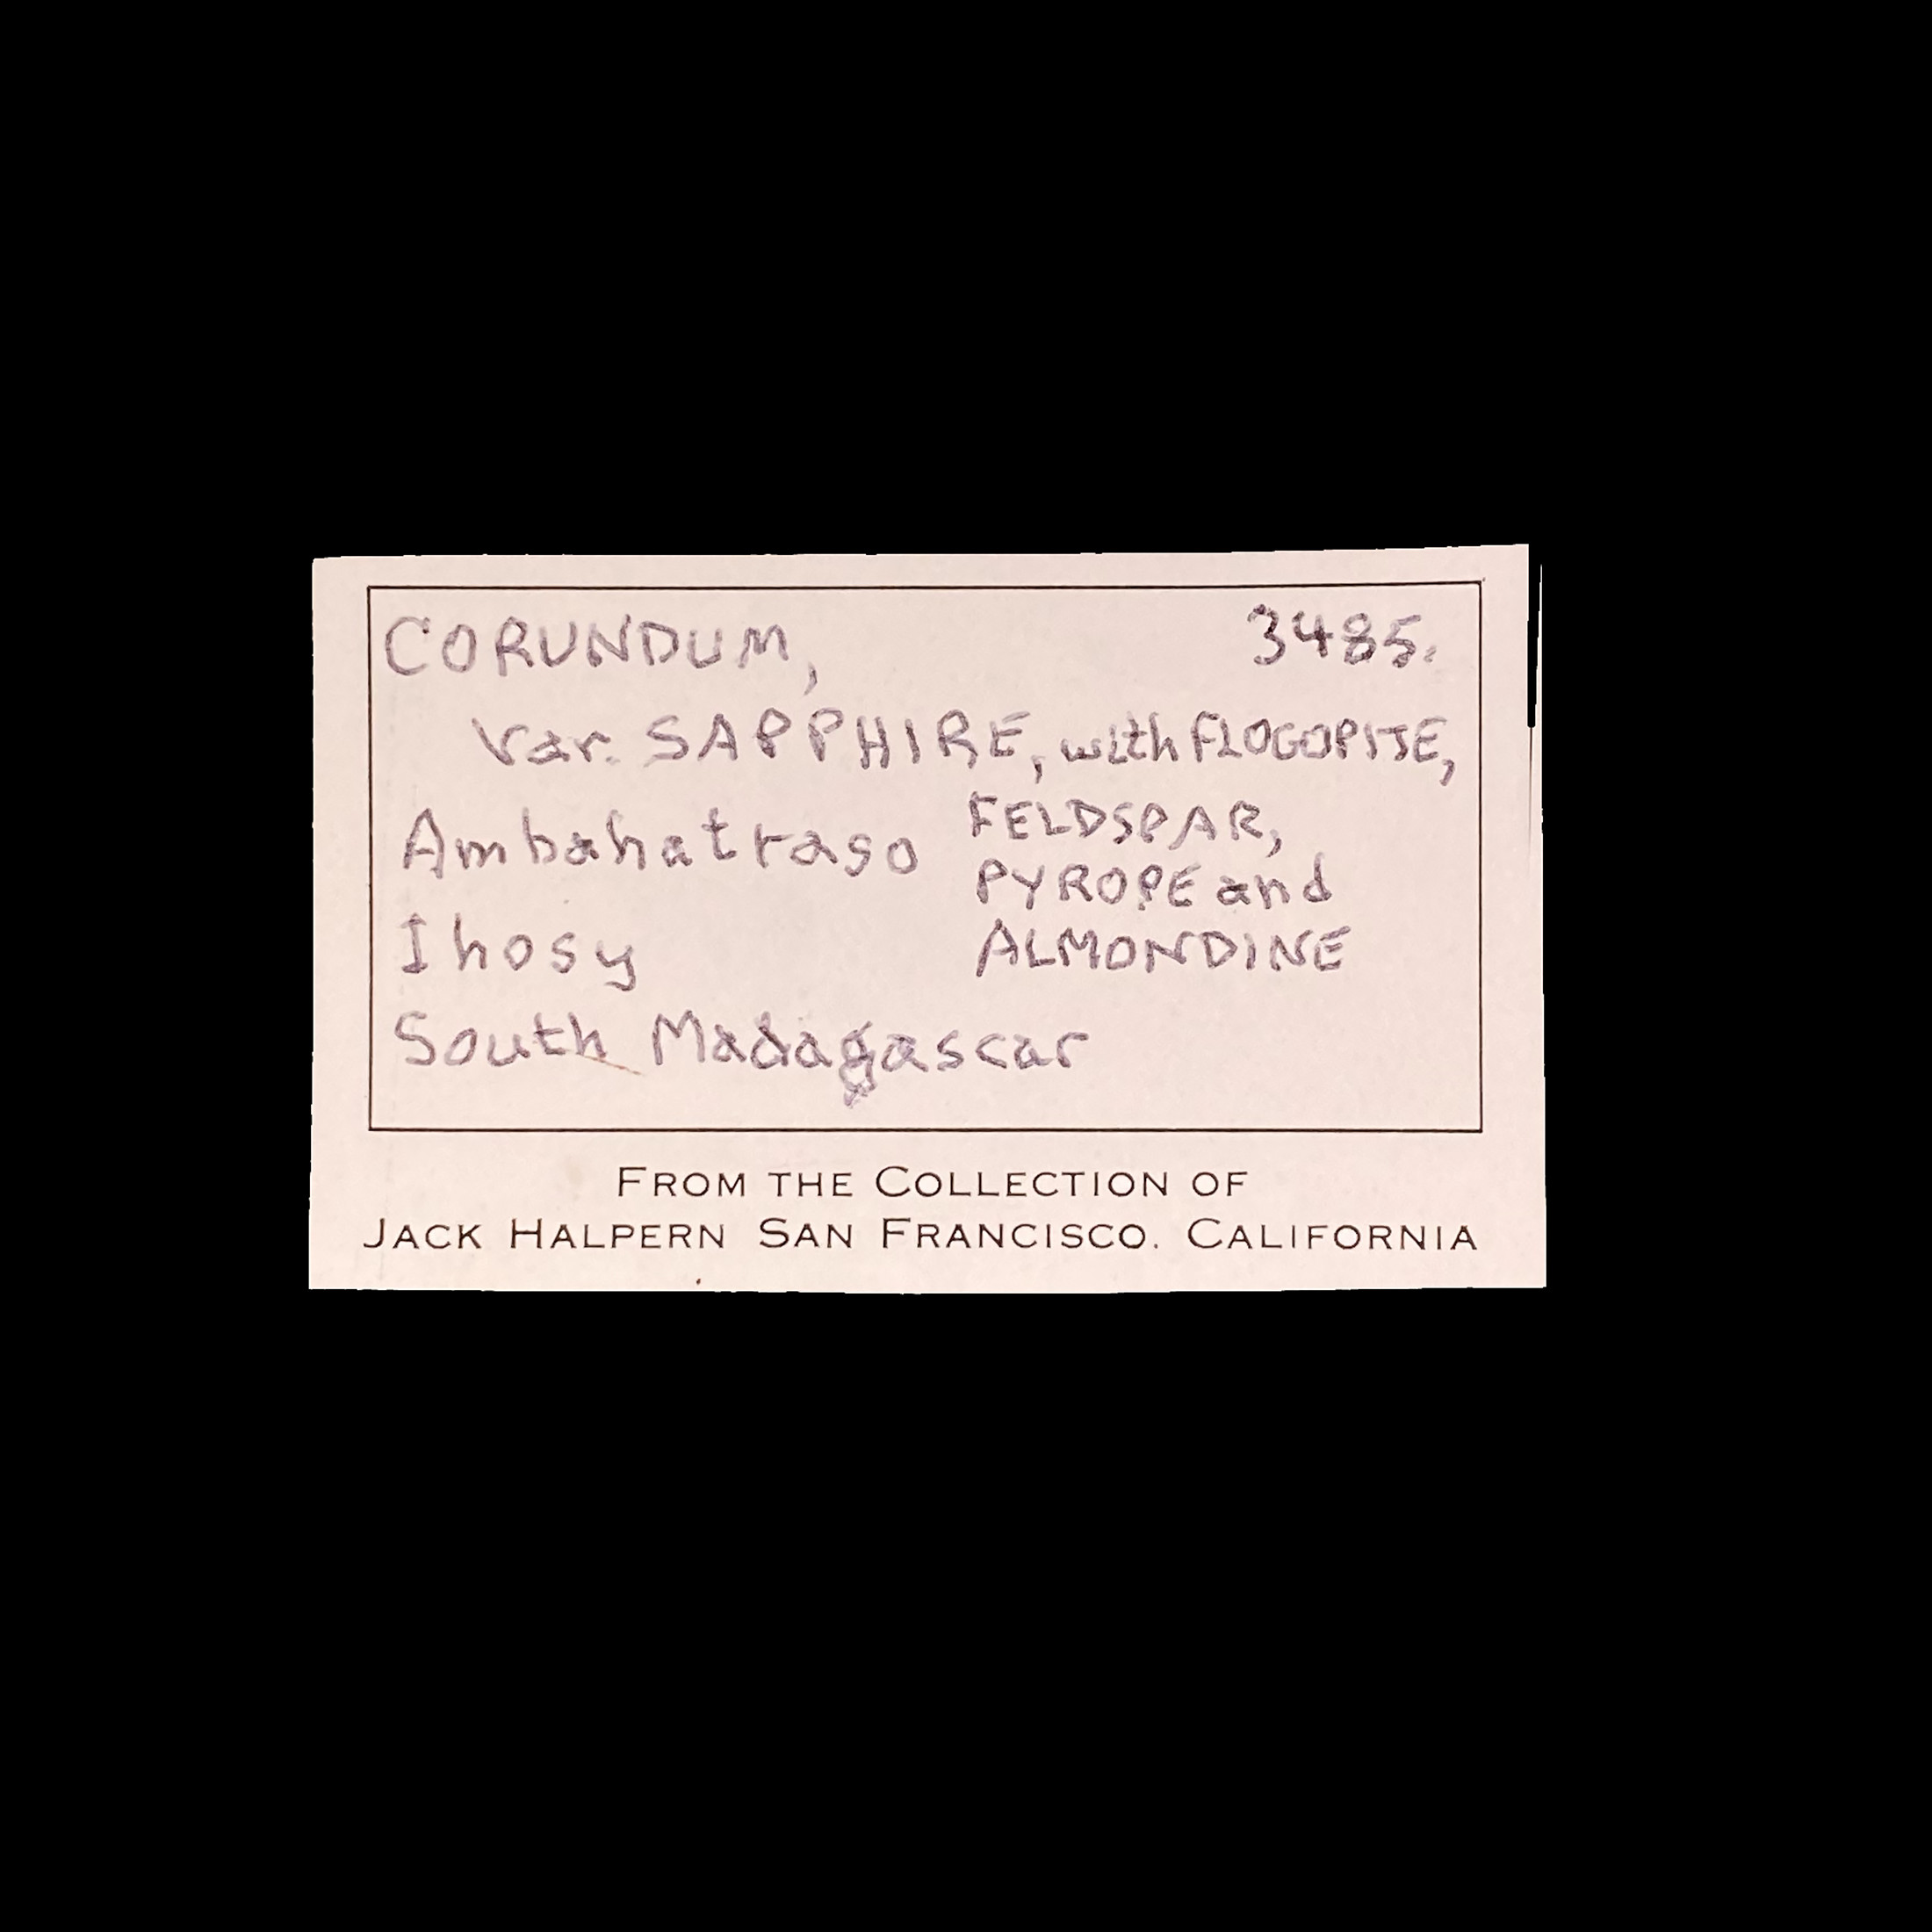 CORUNDUM, 3485.
var. SAPPHIRE, with FLOGOPITE,
Ambahatraso FELDSPAR,
PYROPE and
Ihosy ALMONDINE
South Madagascar
FROM THE COLLECTION OF
JACK HALPERN SAN FRANCISCO. CALIFORNIA